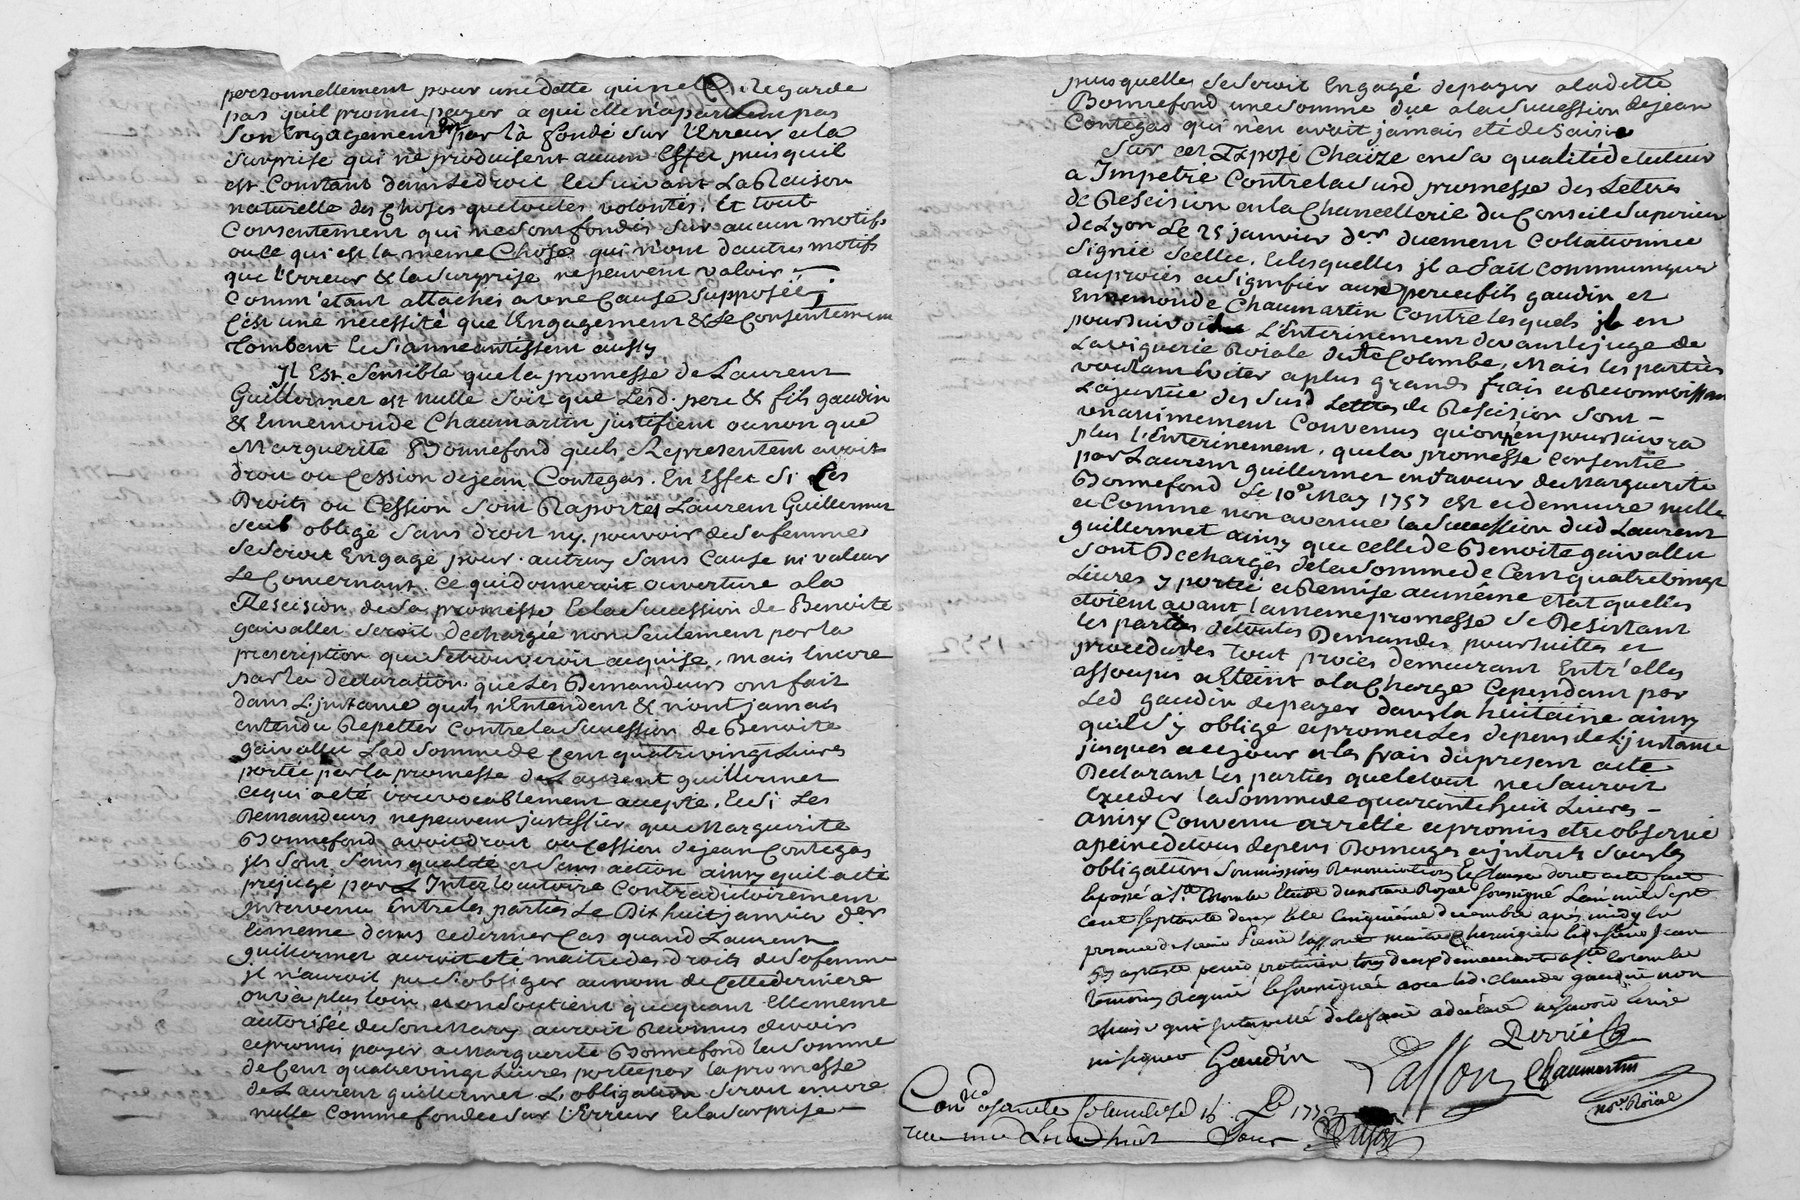 personnellement pour une dette qui ne le Regarde
pas qu'il promet payer a qui elle n'apartient pas
son Engagement par là fondé sur l'Erreur et la
surprise qui ne produisent aucun Effet puisquil
est Constant dans le droit et suivant La Raison
naturelle des Choses que toutes volontés Et tout
Consentement qui ne sont fondés sur aucun motifs
ou ce qui est la meme Chose qui n'ont d'autres motifs
que l'Erreur & la surprise ne peuvent valoir
Comm'étant attachés a une Cause supposée
C'est une nécessité que l'Engagement & Le Consentement
tombent et s'anneantissent aussy
Jl Est sensible que la promesse de Laurent
Guillermet est nulle soit que Lesd. pere & fils gaudin
& Ennemonde Chaumartin justifient ou non que
Marguerite Bonnefond quils Representent avoit
droit ou Cession de jean Contegas. En Effet si Les
Droits ou Cession sont Raportés Laurent Guillermet
seul obligé sans droit ny pouvoir de sa femme
se seroit Engagé pour autruy sans Cause ni valeur
Le Concernant. Ce qui donneroit ouverture a la
Rescision de sa promesse Et la succession de Benoite
gaivallet seroit dechargée non seulement par la
prescription qui se trouveroit acquise, mais Encore
par la declaration que Les Demandeurs ont fait
dans L'jnstance quils n'Entendent & n'ont jamais
entendu Repetter Contre la succession de Benoite
gaivallet Lad somme de Cent quatre vingt Livres
portée par la promesse de Laurent guillermet
ce qui a eté irrevocablement accepté. Et si Les
Demandeurs ne peuvent justiffier que Marguerite
Bonnefond avoit droit ou Cession de jean Contegas
jls sont sans qualité et sans action ainsy quil a eté
préjugé par L'Interlocutoire Contradictoirement
jntervenu Entre les parties Le Dix huit janvier der
Et meme dans ce dernier Cas quand Laurent
guillermet auroit eté maitre des droits de sa femme
jl n'auroit pu s'obliger au nom de Cette derniere
on va plus loin et on soutient que quant Elle meme
autorisée de son Mary auroit Reconnu devoir
et promis payer a Marguerite Bonnefond la somme
de Cent quatre vingt Livres portée par la promesse
de Laurent guillermet L'obligation seroit encore
nulle Comme fondée sur l'Erreur Et la surprise
puisquelles se seroit Engagé de payer a ladette
Bonnefond une somme due a la succession de jean
Contegas qui n'en avoit jamais eté de saisie
Sur cet Exposé Chaize en sa qualité de tuteur
a Impetré Contre la susd promesse des Lettres
de Rescision en la Chancellerie du Conseil Superieur
de Lyon Le 25 janvier der duement Collationnée
signée scellée, Et lesquelles jl a fait communiquer
au procès et signifier aux pere et fils gaudin et
Ennemonde Chaumartin Contre lesquels jl en
poursuivoit L'Enterinement devant le juge de
La viguerie Roiale de Ste Colombe, Mais les parties
voulant Eviter a plus grands frais et Reconnoissant
La justice des susd Lettres de Rescision sont
unanimement Convenus qu'on n'en poursuivra
plus l'Enterinement, que la promesse consentie
par Laurent guillermet en faveur de Marguerite
Bonnefond Le 10e May 1757 est et demeure nulle
et Comme non avenue la succession dud Laurent
guillermet ainsy que celle de Benoite gaivallet
sont Dechargés de la somme de Cent quatre vingt
Livres y portée et Remise au même etat quelles
etoient avant la meme promesse se Desistant
les parties de toutes Demandes poursuittes et
procedures tout procès demeurant Entr'elles
assoupis et Eteint a la Charge Cependant par
Led gaudin de payer dans la huitaine ainsy
quil s'y oblige et promet Les depens de L'jnstance
jusques a ce jour et les frais du present acte
Declarant les parties que le tout ne sauroit
Exceder la somme de quarante huit Livres
ainsy Convenu arretté et promis etre observé
a peine de tous depens Domages et jnterets sous les
obligations soumissions Renonciations Et Clauses dont acte fait
et passé à Ste Colombe Etude du notaire Royal soussigné L'an mil sept
cent septante deux Et le cinquième decembre après midy En
presence de sieur Pierre Lassont maitre Chirurgien Et de sieur Jean
tous deux demeurant a Ste Colombe
temoins Requis Et soussignés avec led. Claude gaudin non
Chaize qui a declaré ne savoir Ecrire
ni signer Gaudin
Derrie
Lasson Chaumartin
nore Roïal
Conlé a Sainte Colombe Le 15 Xbre 1772
Reçu